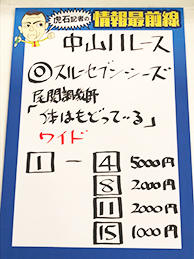 虎石記者の情報最前線
中山11レース
◎スルーセブンシーズ
尾関調教師
「体はもどっている」
ワイド
1 - 4 5000円
8 2000円
11 2000円
15 1000円